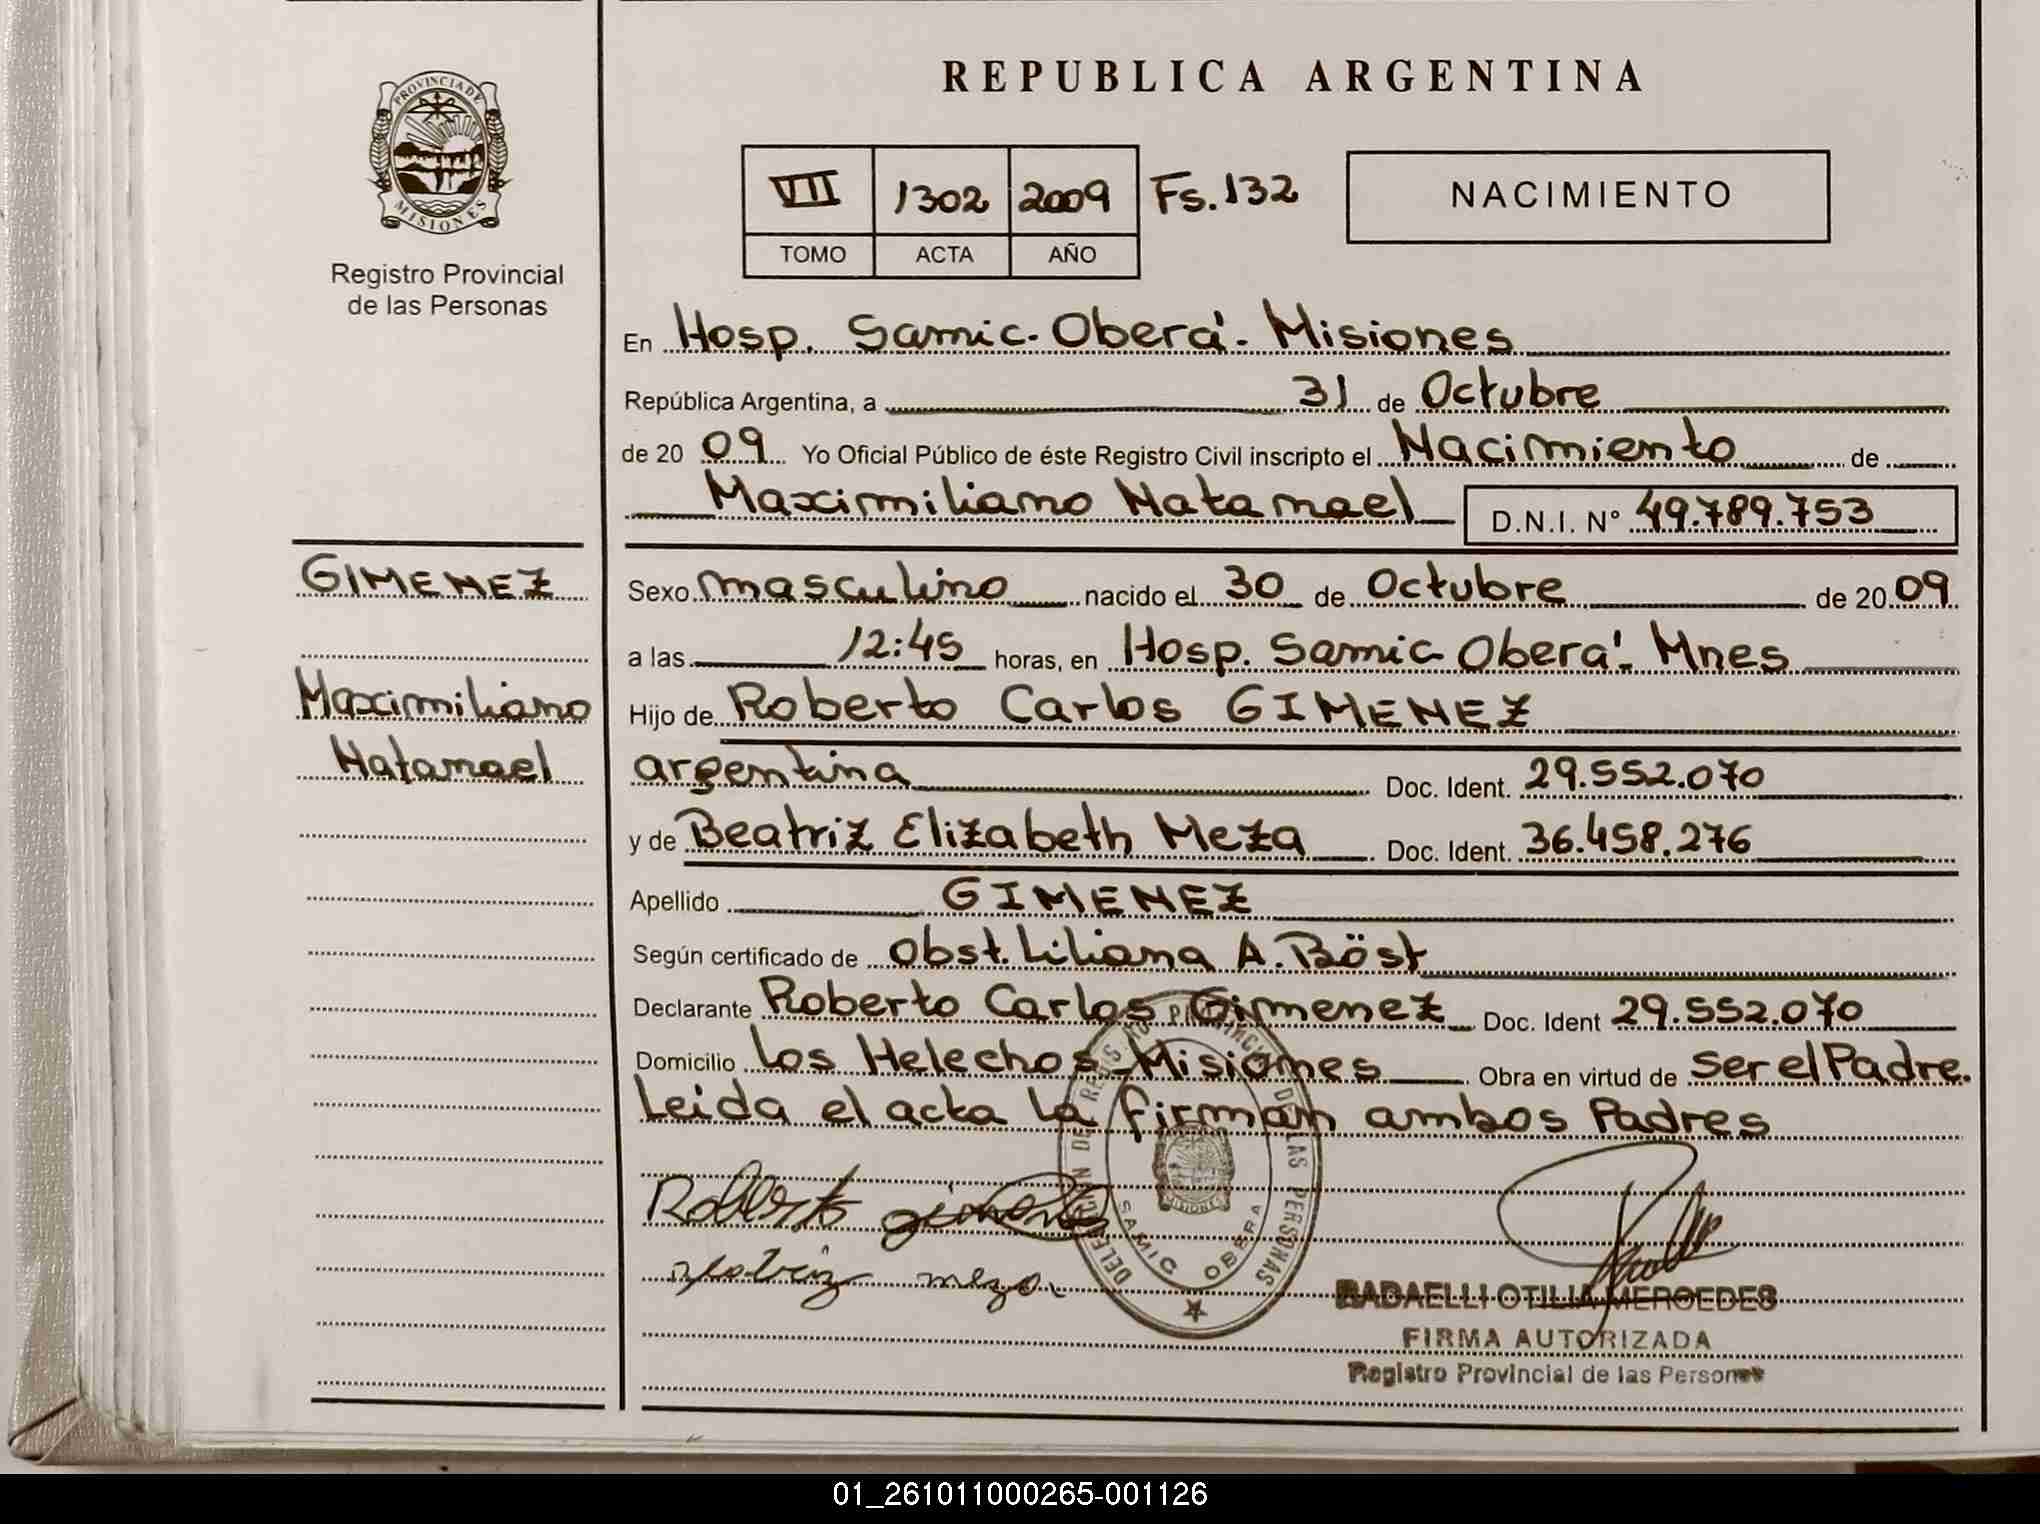 REPUBLICA ARGENTINA
PROVINCIA DE MISIONES
Registro Provincial
de las Personas
VII 1302 2009 Fs. 132
TOMO ACTA AÑO
NACIMIENTO
En Hosp. Samic - Oberá - Misiones
República Argentina, a 31 de Octubre
de 2009 Yo Oficial Público de éste Registro Civil inscripto el Nacimiento de
Maximiliano Natanael D.N.I. N° 49.789.753
GIMENEZ
Maximiliano
Natanael
Sexo masculino nacido el 30 de Octubre de 2009
a las 12:45 horas, en Hosp. Samic Oberá - Mnes
Hijo de Roberto Carlos GIMENEZ
argentina Doc. Ident. 29.552.070
y de Beatriz Elizabeth Meza Doc. Ident. 36.458.276
Apellido GIMENEZ
Según certificado de Obst. Liliana A. Böst
Declarante Roberto Carlos Gimenez Doc. Ident 29.552.070
Domicilio Los Helechos - Misiones Obra en virtud de ser el Padre.
Leida el acta la firman ambos Padres
Roberto Gimenez
meza
SAMIC OBERA
RADAELLI OTILIA MERCEDES
FIRMA AUTORIZADA
Registro Provincial de las Personas
01_261011000265-001126